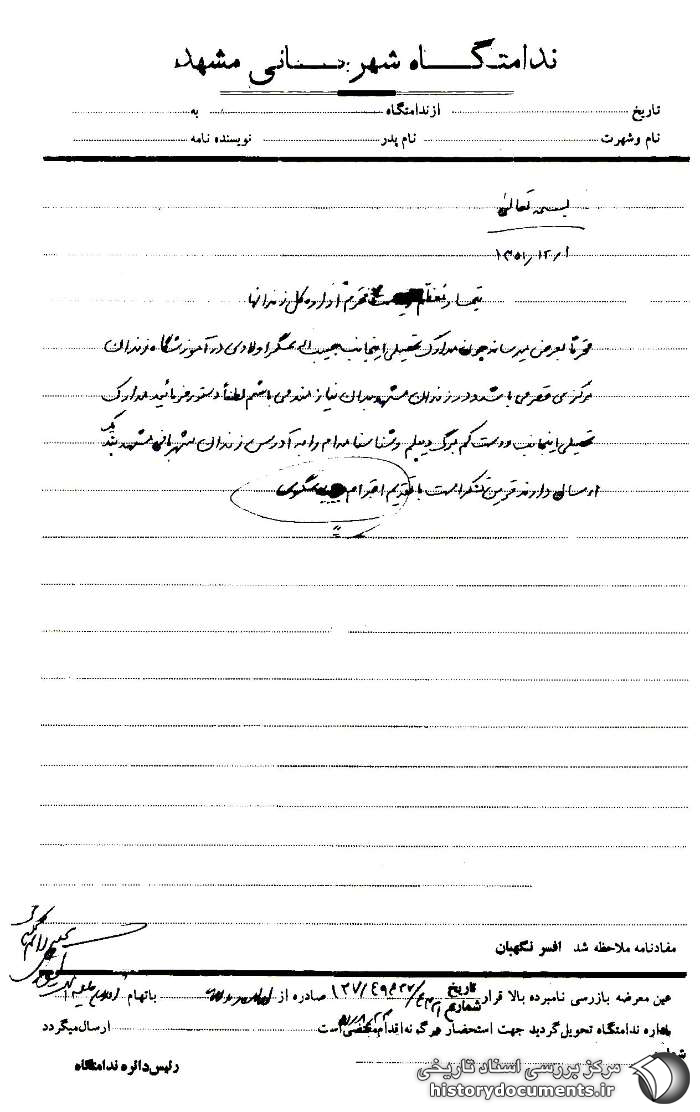 ندامتگاه شهربانی مشهد
تاریخ از ندامتگاه به
نام و شهرت نام پدر نویسنده نامه
بسمه تعالی
۱۳۵۱/۱۲/۱
تیمسار معظم محترم اداره کل زندانها
محترماً بعرض میرساند چون مدارک تحصیلی اینجانب حبیب اله عسگراولادی در آموزشگاه زندان
مرکزی قصر می باشد و در زندان مشهد بدان نیازمند می باشم لطفاً دستور فرمائید مدارک
تحصیلی اینجانب و دست کم برگ دیپلم و شناسنامه ام را به آدرس زندان شهربانی مشهد بند یک
ارسال دارند قرین تشکر است با تقدیم احترام
مفاد نامه ملاحظه شد افسر نگهبان
عین معرضه بازرسی نامبرده بالا قرار تاریخ شماره صادره از باتهام
باداره ندامتگاه تحویل گردید جهت استحضار هرگونه اقدام مقتضی است ارسال میگردد
شماره
رئیس دائره ندامتگاه
مرکز بررسی اسناد تاریخی
historydocuments.ir